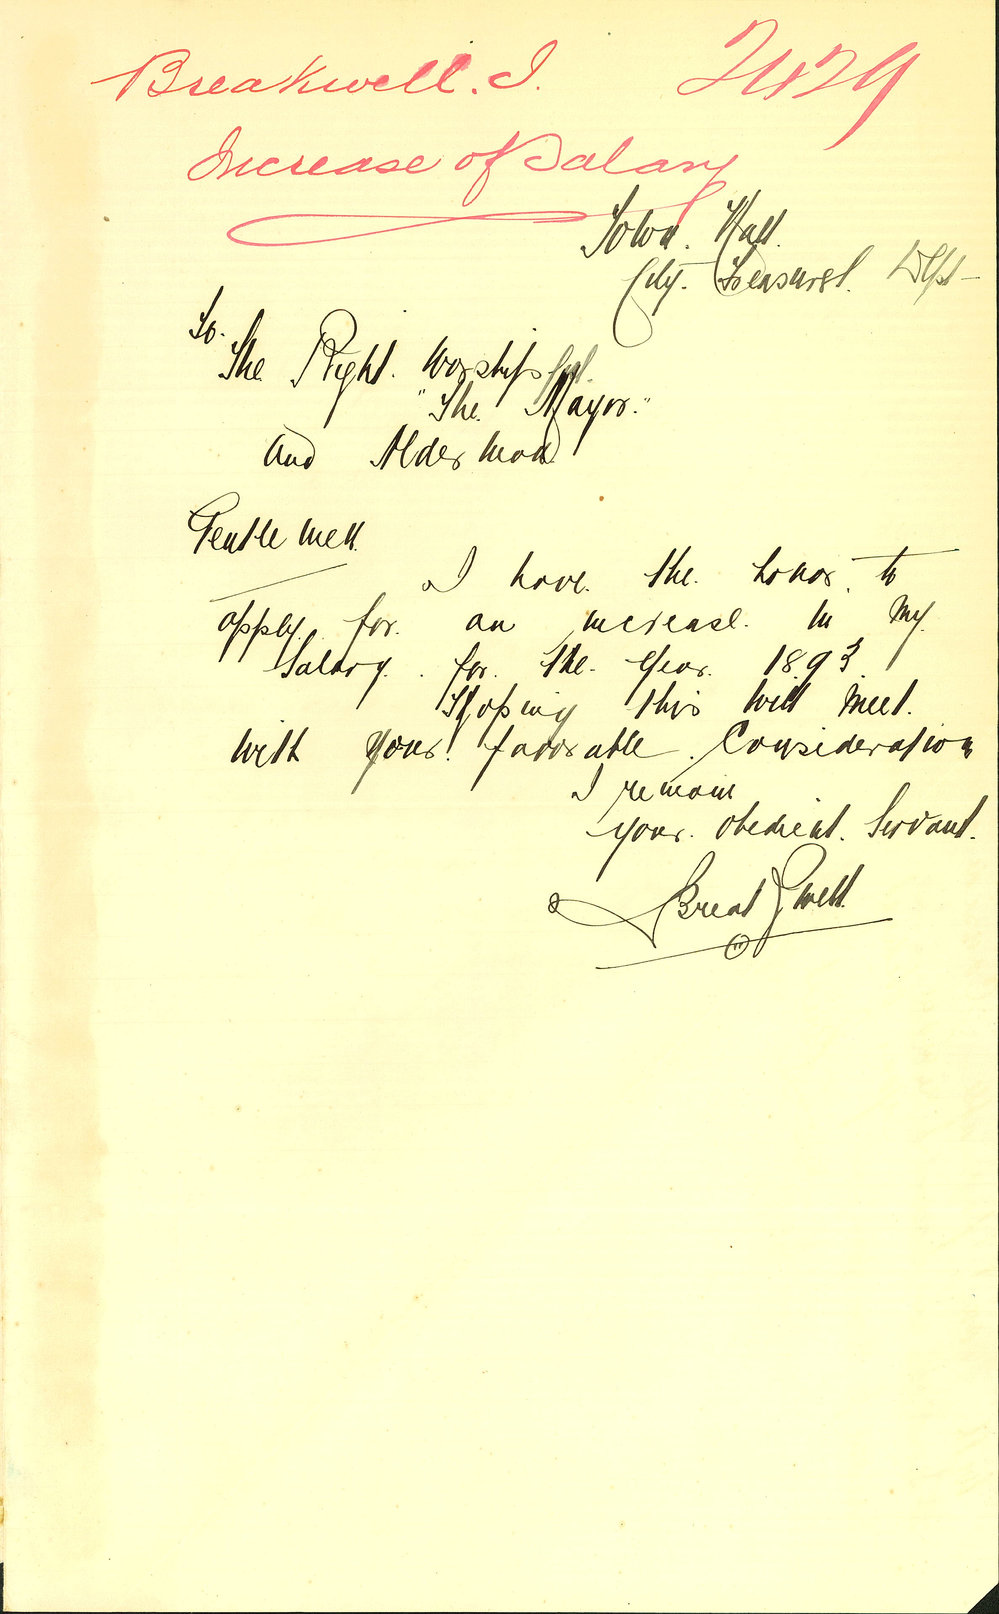 Breakwell. J. 2429
Increase of Salary
Town. Hall.
City. Treasurer. Dept
To.
The Right. Worshipful.
"The. Mayor."
and Aldermen
Gentlemen.
I have. the. honor. to
apply. for. an increase. in my.
Salary. for. the. year. 1893.
Hoping this will meet.
with your. favorable. Consideration
I remain
your. obedient. Servant.
Breakwell.